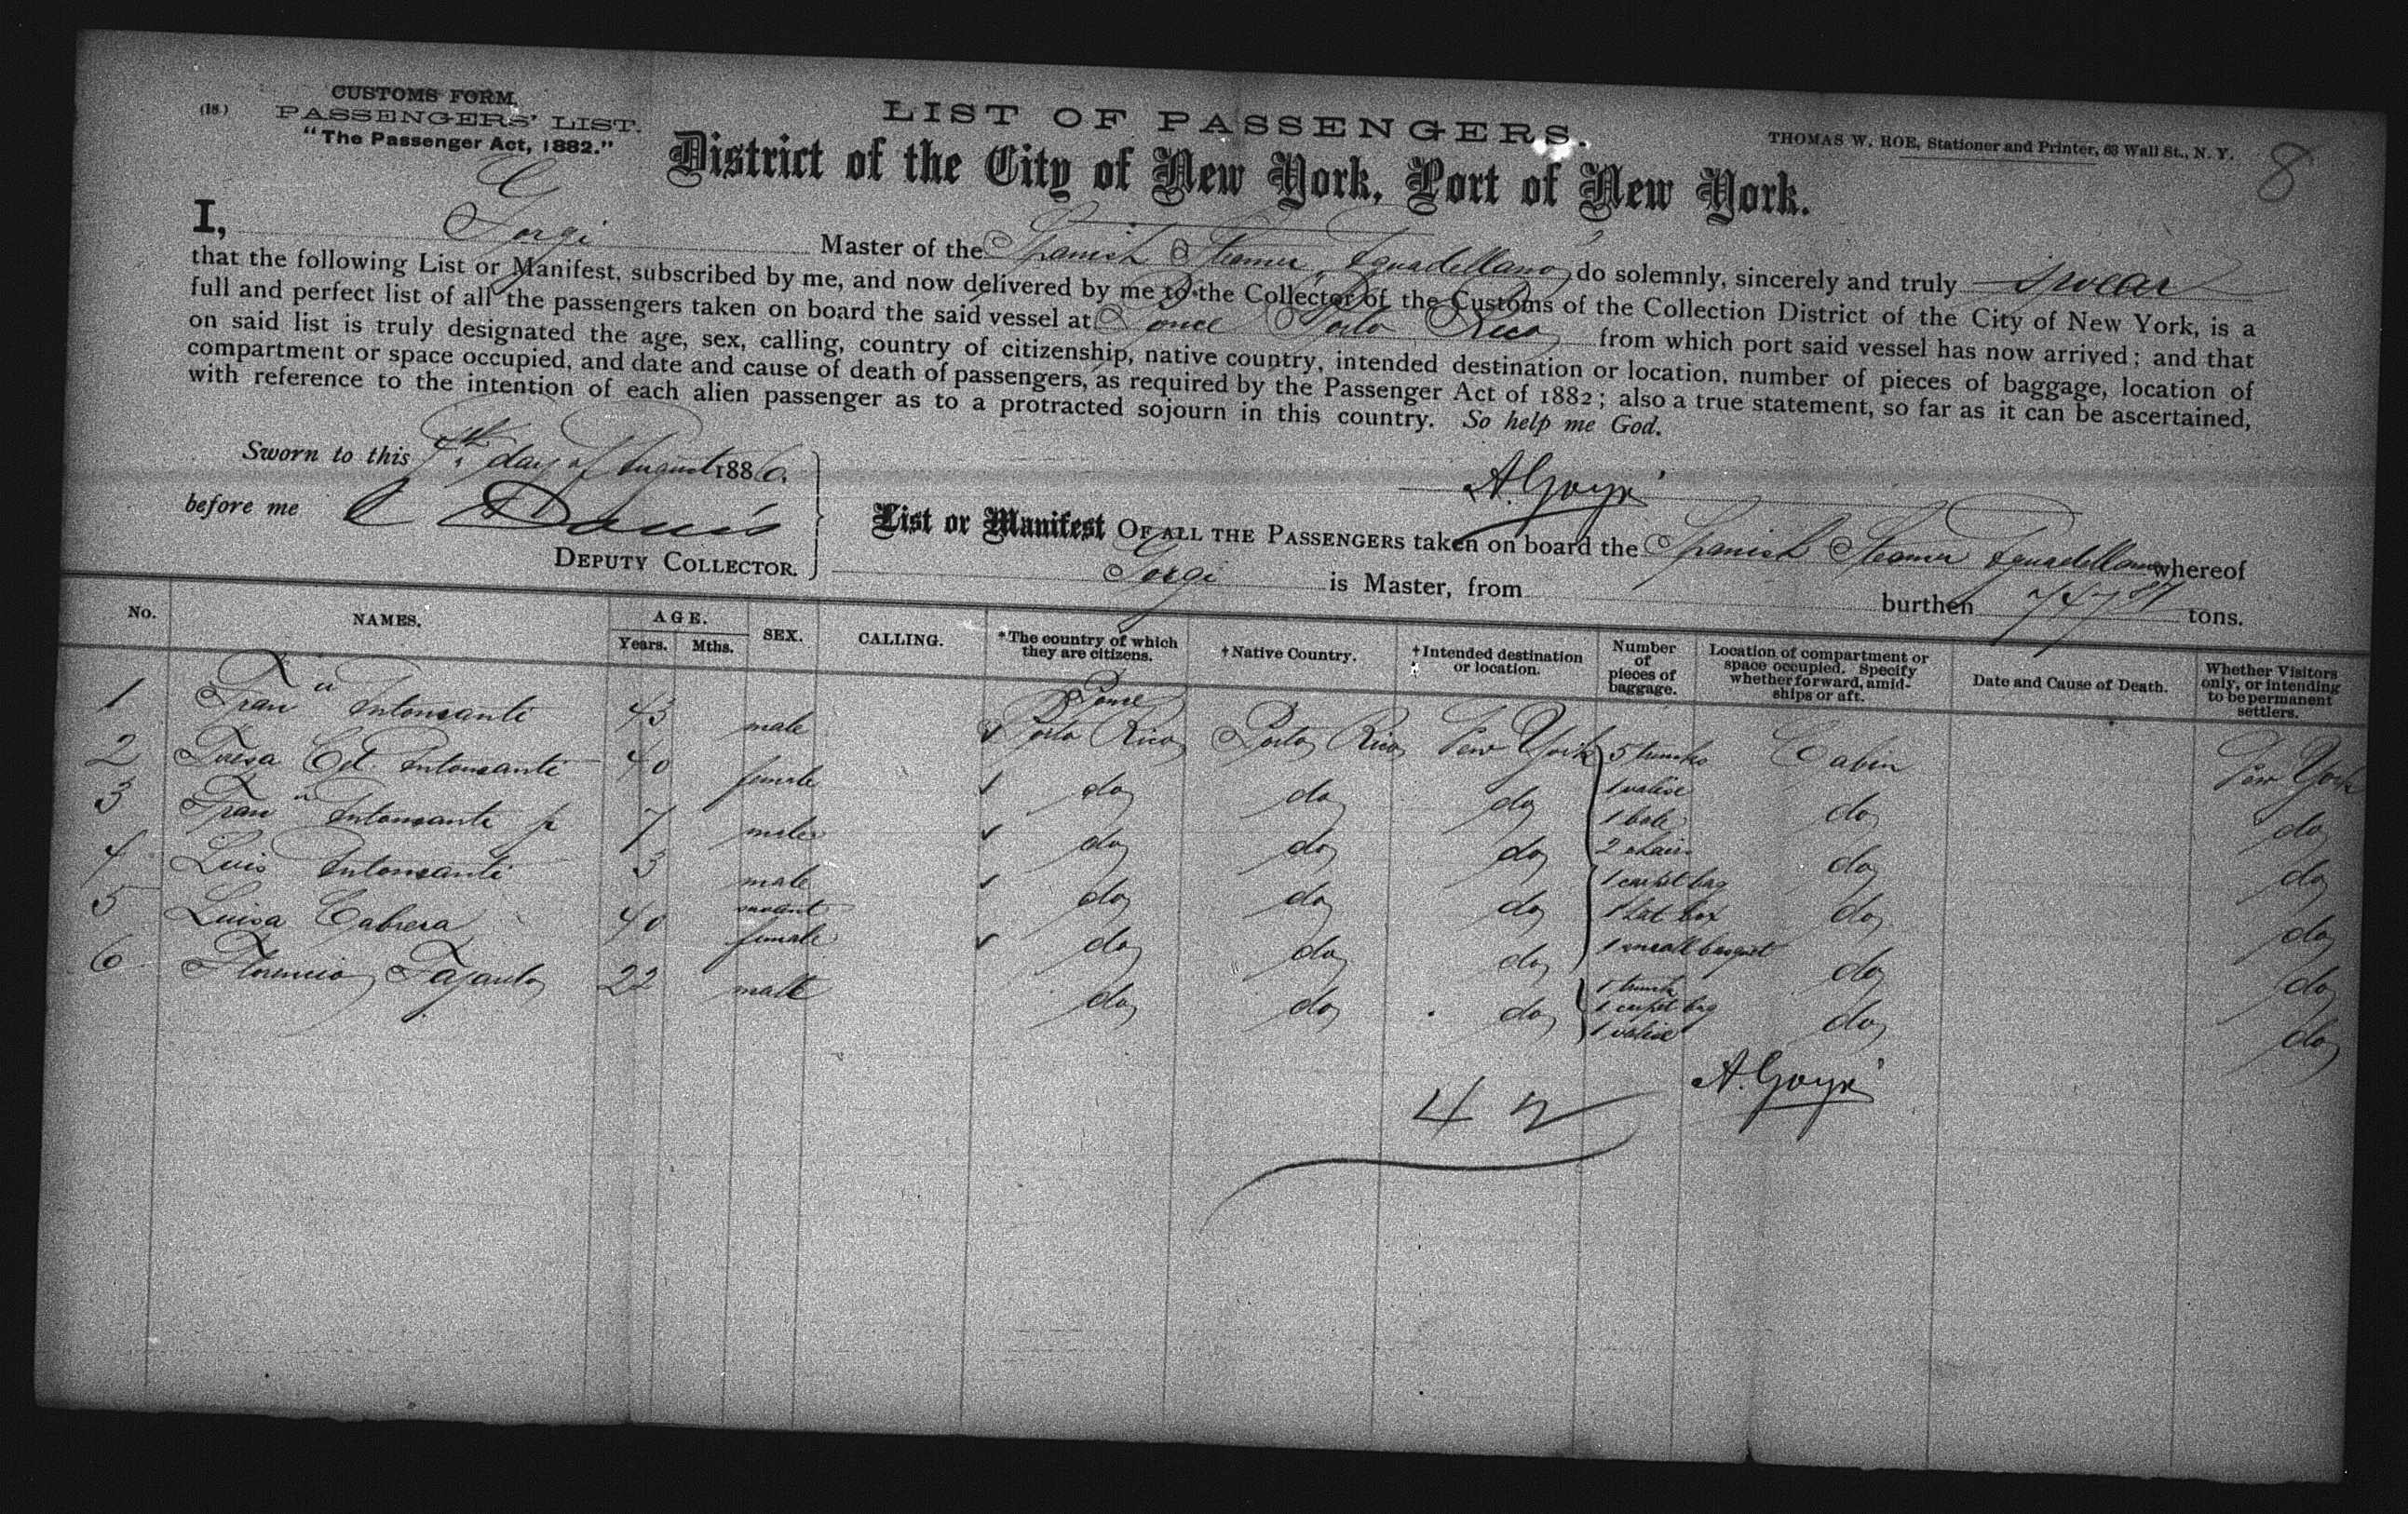 (18.)
CUSTOMS FORM,
PASSENGERS' LIST.
"The Passenger Act, 1882."
LIST OF PASSENGERS.
THOMAS W. ROE, Stationer and Printer, 63 Wall St., N. Y.
8
District of the City of New York, Port of New York.
I, Master of the Spanish Steamer do solemnly, sincerely and truly swear
that the following List or Manifest, subscribed by me, and now delivered by me to the Collector of the Customs of the Collection District of the City of New York, is a
full and perfect list of all the passengers taken on board the said vessel at Ponce Porto Rico from which port said vessel has now arrived; and that
on said list is truly designated the age, sex, calling, country of citizenship, native country, intended destination or location, number of pieces of baggage, location of
compartment or space occupied, and date and cause of death of passengers, as required by the Passenger Act of 1882; also a true statement, so far as it can be ascertained,
with reference to the intention of each alien passenger as to a protracted sojourn in this country. So help me God.
Sworn to this day of August 1886.
before me C Davis
DEPUTY COLLECTOR.
List or Manifest OF ALL THE PASSENGERS taken on board the Spanish Steamer whereof
is Master, from burthen tons.
No. NAMES. AGE. Years. Mths. SEX. CALLING. *The country of which they are citizens. †Native Country. †Intended destination or location. Number of pieces of baggage. Location of compartment or space occupied. Specify whether forward, amidships or aft. Date and Cause of Death. Whether Visitors only, or intending to be permanent settlers.
Ponce
1 43 male Porto Rico Porto Rico New York 5 trunks Cabin New York
2 40 female do do do 1 valise do do
1 bale
3 7 male do do do 2 chairs do do
4 Luis 3 male do do do 1 carpet bag do do
servant 1 hat box
5 Luisa Cabrera 40 female do do do 1 small basquet do do
6 Florencio 22 male do do do 1 trunk do do
1 carpet bag
1 valise